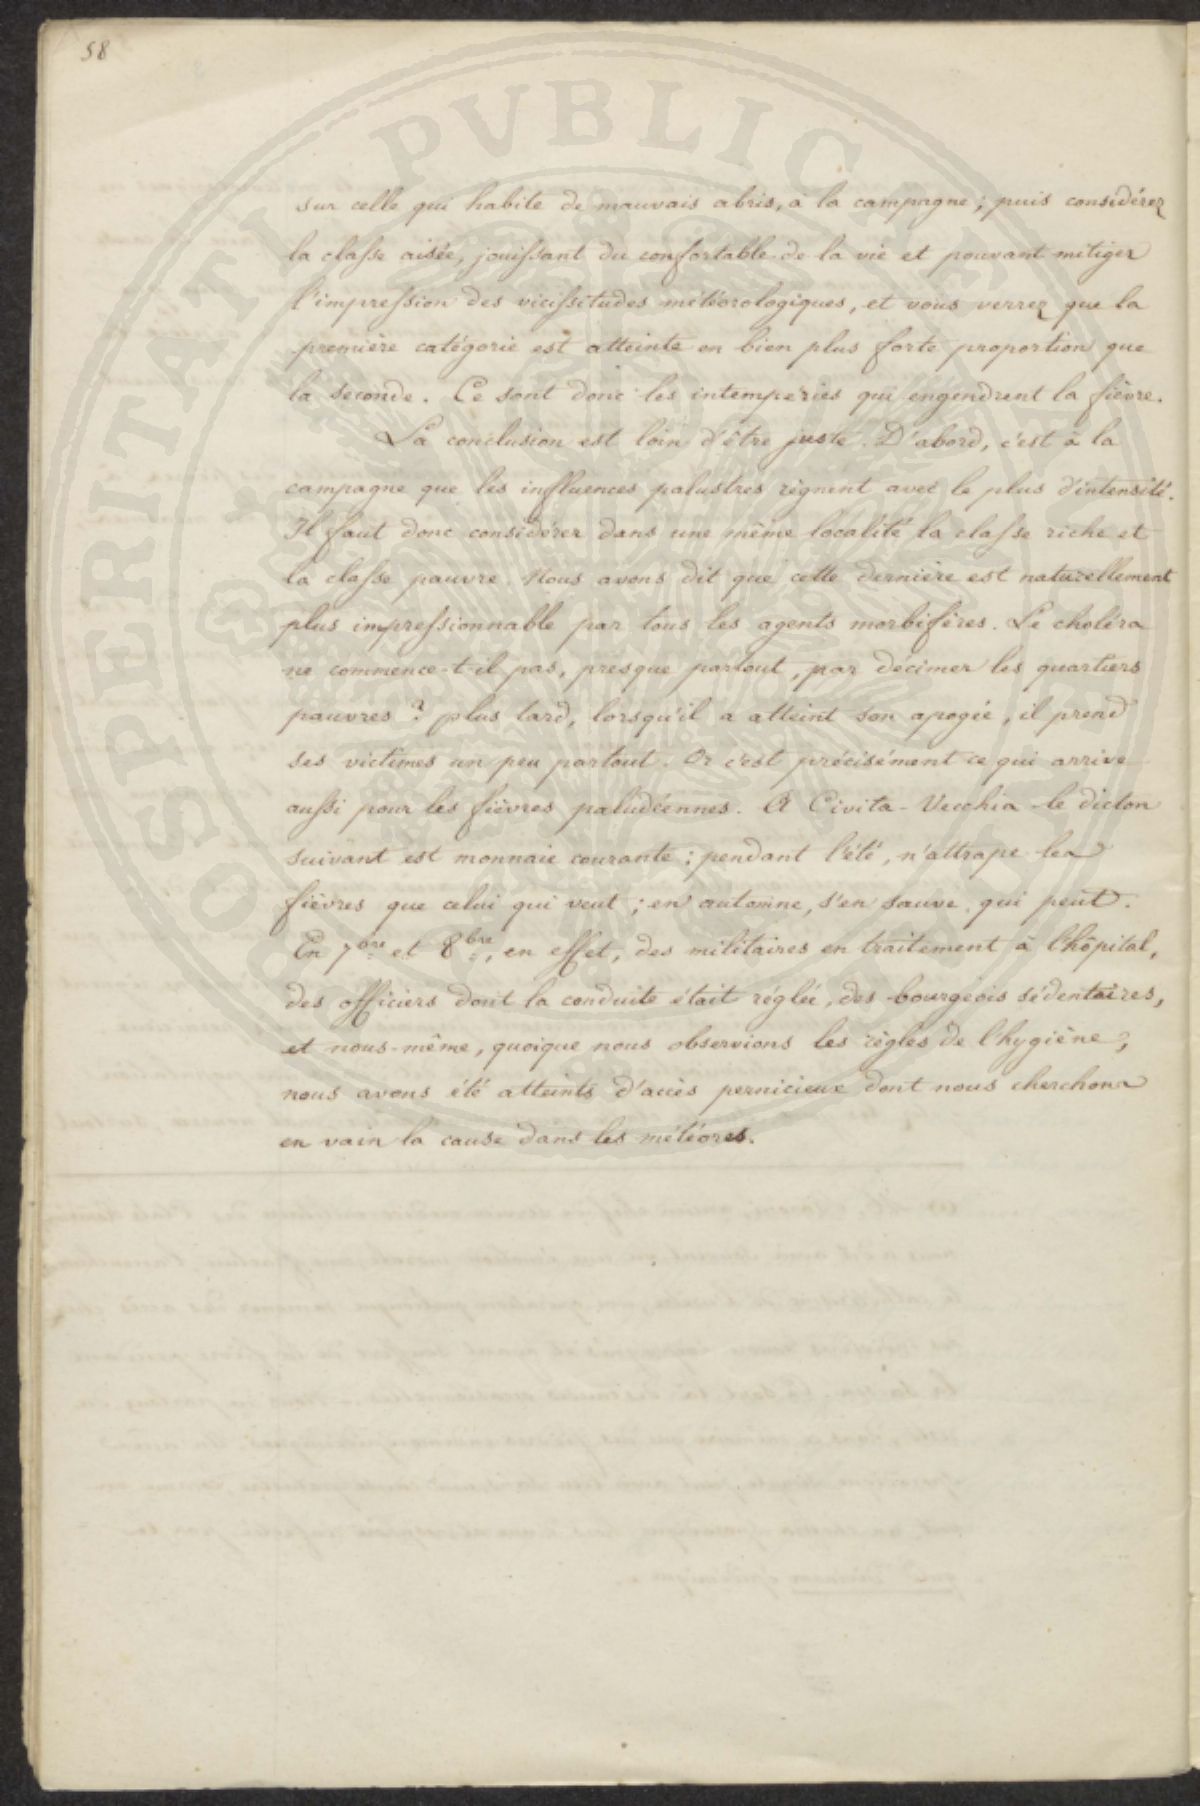 58
PROSPERITATI PUBLICAE
sur celle qui habite de mauvais abris, à la campagne ; puis considérez
la classe aisée, jouissant du confortable de la vie et pouvant mitiger
l'impression des vicissitudes météorologiques, et vous verrez que la
première catégorie est atteinte en bien plus forte proportion que
la seconde. Ce sont donc les intempéries qui engendrent la fièvre.
La conclusion est loin d'être juste. D'abord, c'est à la
campagne que les influences palustres règnent avec le plus d'intensité.
Il faut donc considérer dans une même localité la classe riche et
la classe pauvre. Nous avons dit que cette dernière est naturellement
plus impressionnable par tous les agents morbifères. Le choléra
ne commence-t-il pas, presque partout, par décimer les quartiers
pauvres ? plus tard, lorsqu'il a atteint son apogée, il prend
ses victimes un peu partout. Or c'est précisément ce qui arrive
aussi pour les fièvres paludéennes. A Civita-Vecchia le dicton
suivant est monnaie courante ; pendant l'été, n'attrape les
fièvres que celui qui veut ; en automne, s'en sauve qui peut.
En 7bre et 8bre, en effet, des militaires en traitement à l'hôpital,
des officiers dont la conduite était réglée, des bourgeois sédentaires,
et nous-même, quoique nous observions les règles de l'hygiène,
nous avons été atteints d'accès pernicieux dont nous cherchons
en vain la cause dans les météores.